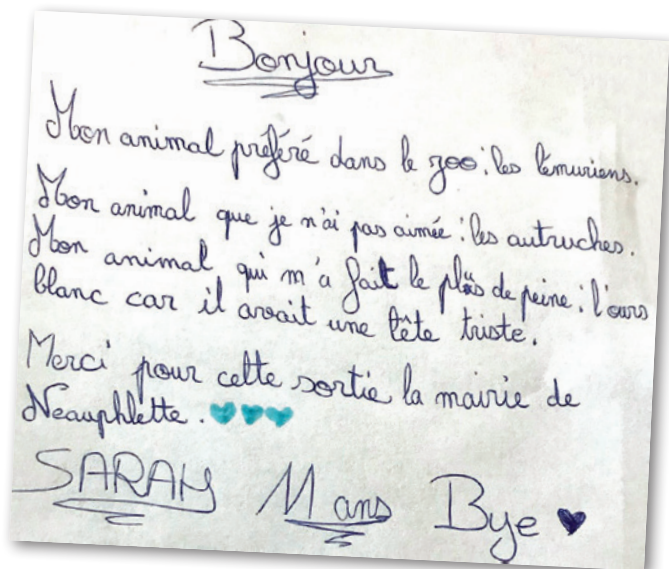 Bonjour
Mon animal préféré dans le zoo : les lémuriens.
Mon animal que je n'ai pas aimée : les autruches.
Mon animal qui m'a fait le plus de peine : l'ours
blanc car il avait une tête triste.
Merci pour cette sortie la mairie de
Neauphlette. 💙💙💙
SARAH 11 ans Bye ♥